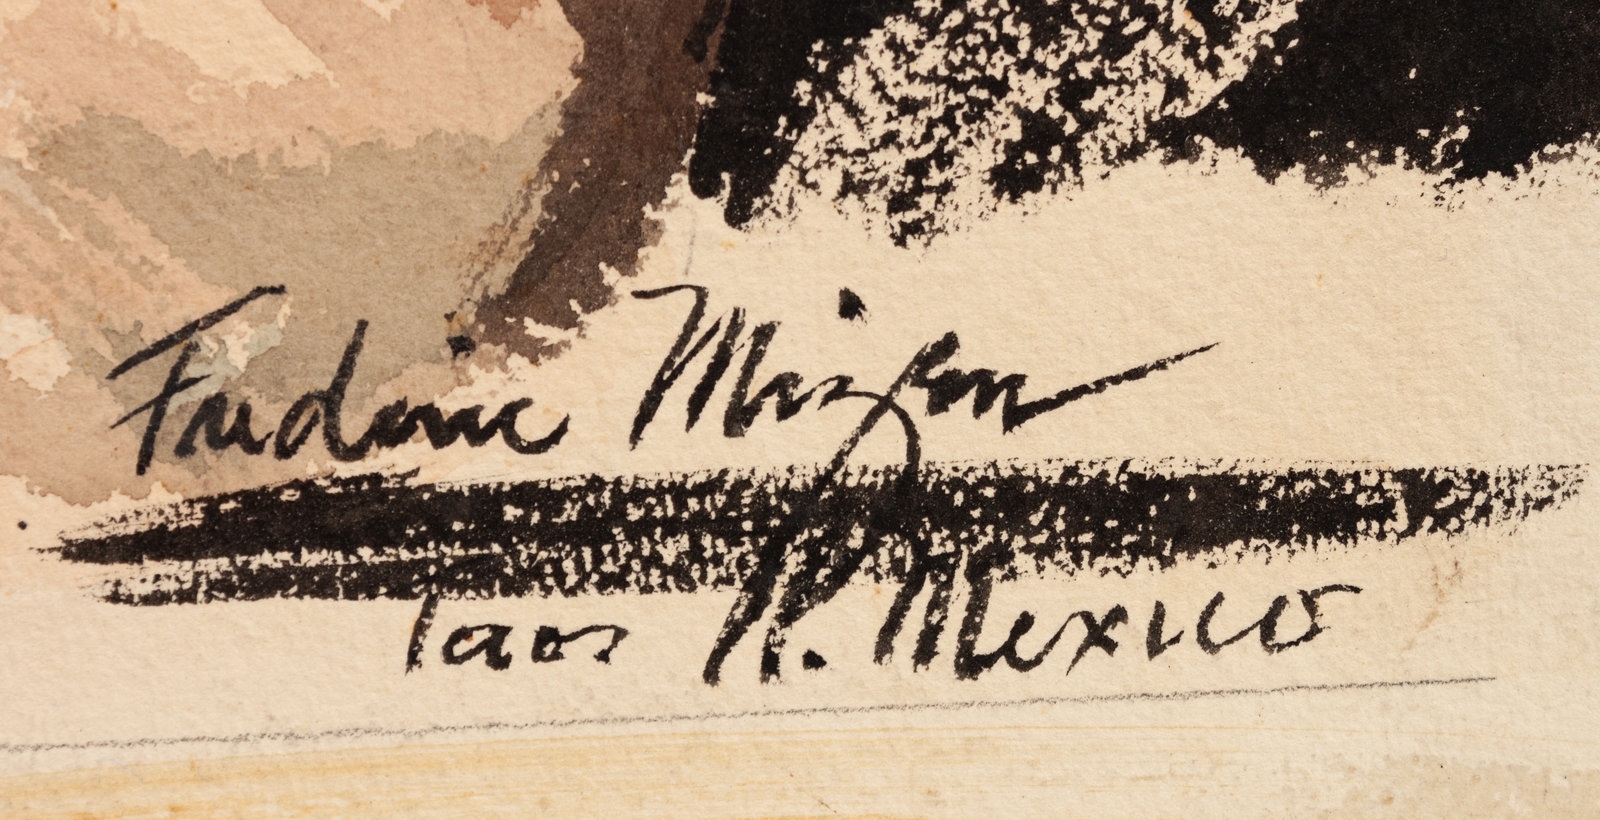 Frederic Mizen
Taos N. Mexico